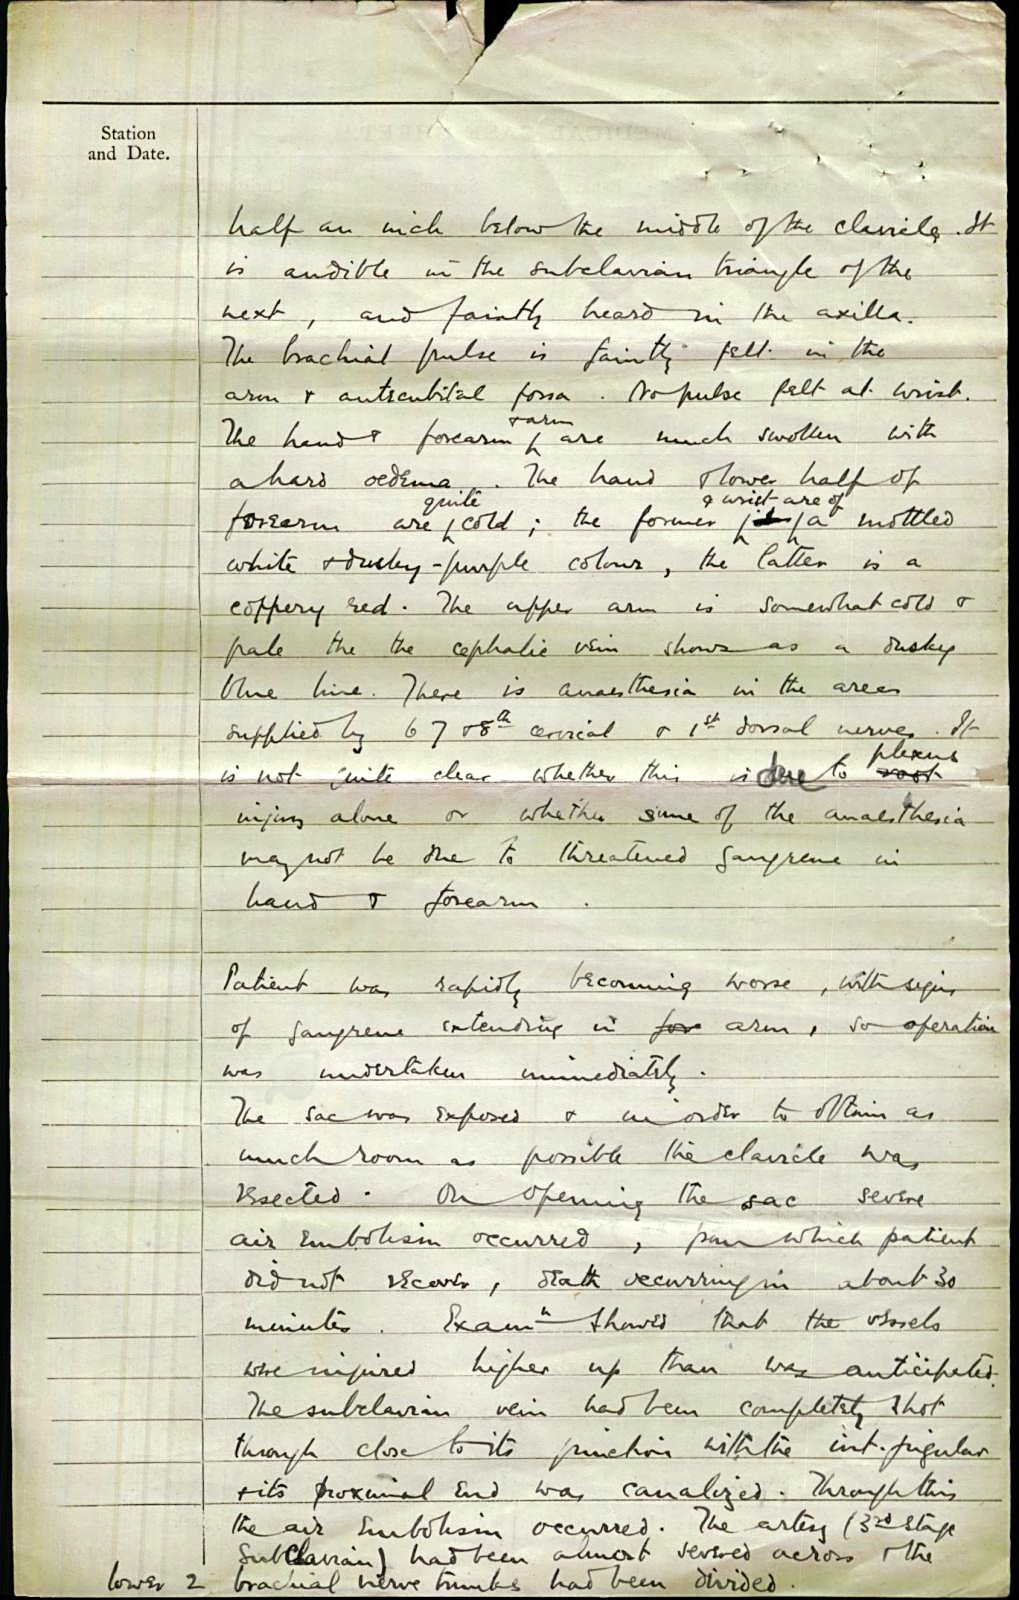 Station
and Date.
half an inch below the middle of the clavicle. It
is audible in the subclavian triangle of the
next, and faintly heard in the axilla.
The brachial pulse is faintly felt in the
arm & antecubital fossa. No pulse felt at wrist.
& arm
The hand & forearm are much swollen with
a hard oedema. The hand & lower half of
quite & wrist are of
forearm are cold; the former is a mottled
white & dusky-purple colour, the latter is a
coppery red. The upper arm is somewhat cold &
pale the the cephalic vein shows as a dusky
blue line. There is anaesthesia in the areas
supplied by 6 7 & 8th cervical & 1st dorsal nerves. It
plexus
is not quite clear whether this is due to root
injury alone or whether some of the anaesthesia
may not be due to threatened gangrene in
hand & forearm.
Patient was rapidly becoming worse, with signs
of gangrene extending in for arm, so operation
was undertaken immediately.
The sac was exposed & in order to obtain as
much room as possible the clavicle was
resected. On opening the sac severe
air embolism occurred, from which patient
did not recover, death occurring in about 30
minutes. Examn showed that the vessels
were injured higher up than was anticipated.
The subclavian vein had been completely shot
through close to its junction with the int. jugular
& its proximal end was canalized. Through this
the air embolism occurred. The artery (3rd stage
Subclavian) had been almost severed across & the
lower 2 brachial nerve trunks had been divided.